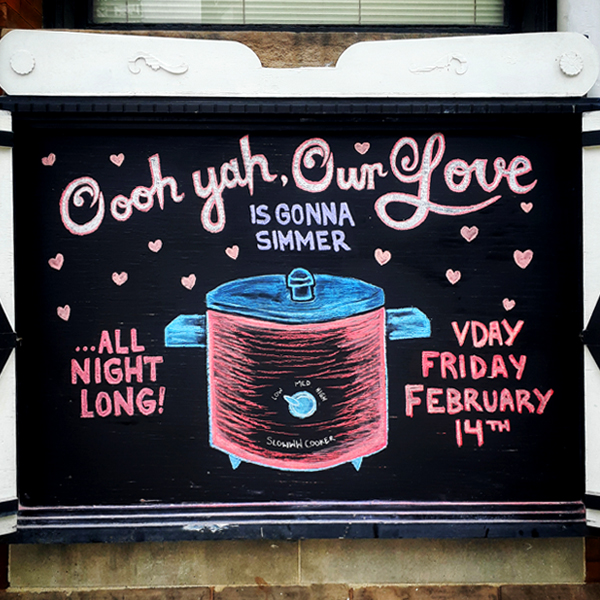 Oooh yah, Our Love
IS GONNA
SIMMER
...ALL
NIGHT
LONG!
LOW MED HIGH
SLOWWW COOKER
VDAY
FRIDAY
FEBRUARY
14TH